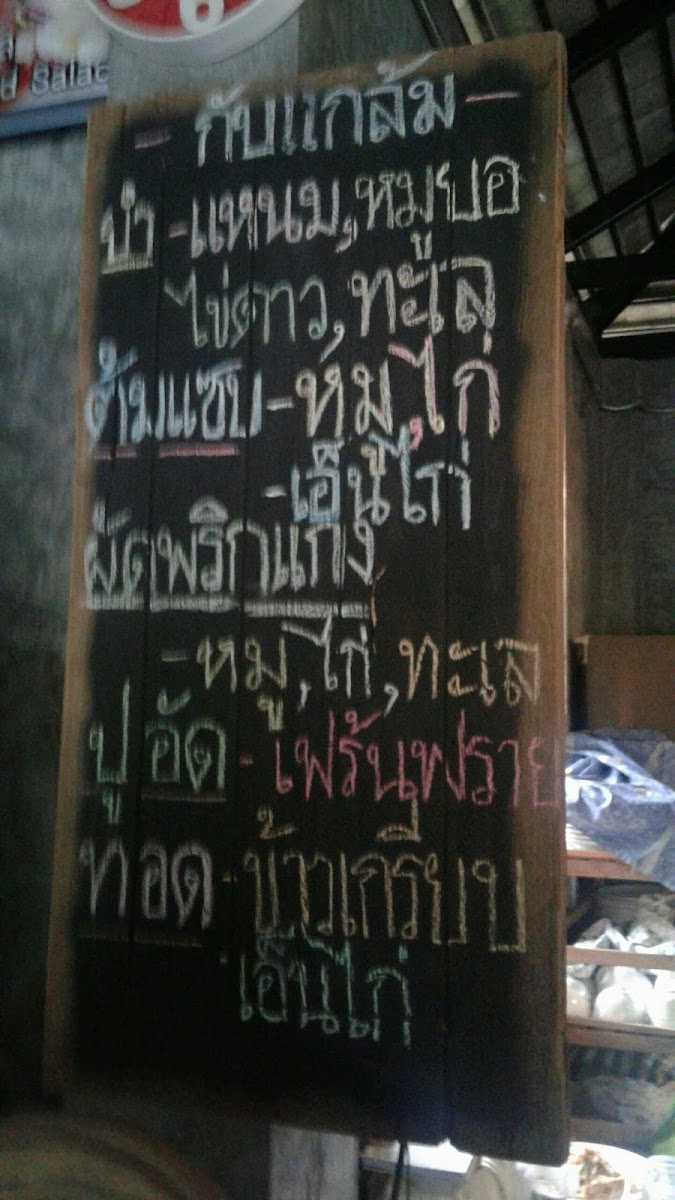 d Salad
- กับแกล้ม -
ยำ - แหนม, หมูยอ
ไข่ดาว, ทะเล
ต้มแซบ - หมู, ไก่
- เอ็นไก่
ผัดพริกแกง
- หมู, ไก่, ทะเล
ปูอัด - เฟร้นฟราย
ทอด - ข้าวเกรียบ
เอ็นไก่